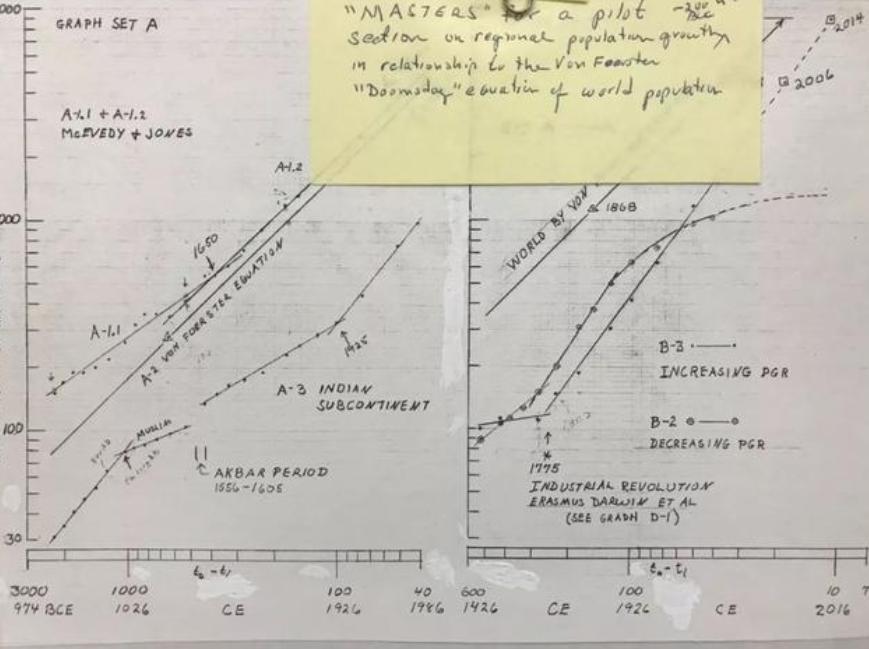 "MASTERS" for a pilot
section on regional population growth
in relationship to the Von Foerster
"Doomsday" equation of world population
000
GRAPH SET A
A-1.1 + A-1.2
McEVEDY & JONES
A-1.2
000
1650
A-1.1
A-2 VON FOERSTER EQUATION
1925
A-3 INDIAN
SUBCONTINENT
100
MUSLIM
AKBAR PERIOD
1556-1605
30
t₀-t₁
3000
1000
100
40
974 BCE
1026
CE
1926
1986
2014
2006
WORLD BY VON
1868
B-3
INCREASING PGR
B-2
DECREASING PGR
1775
INDUSTRIAL REVOLUTION
ERASMUS DARWIN ET AL
(SEE GRAPH D-1)
t₀-t₁
600
100
10
7
1426
CE
1926
CE
2016